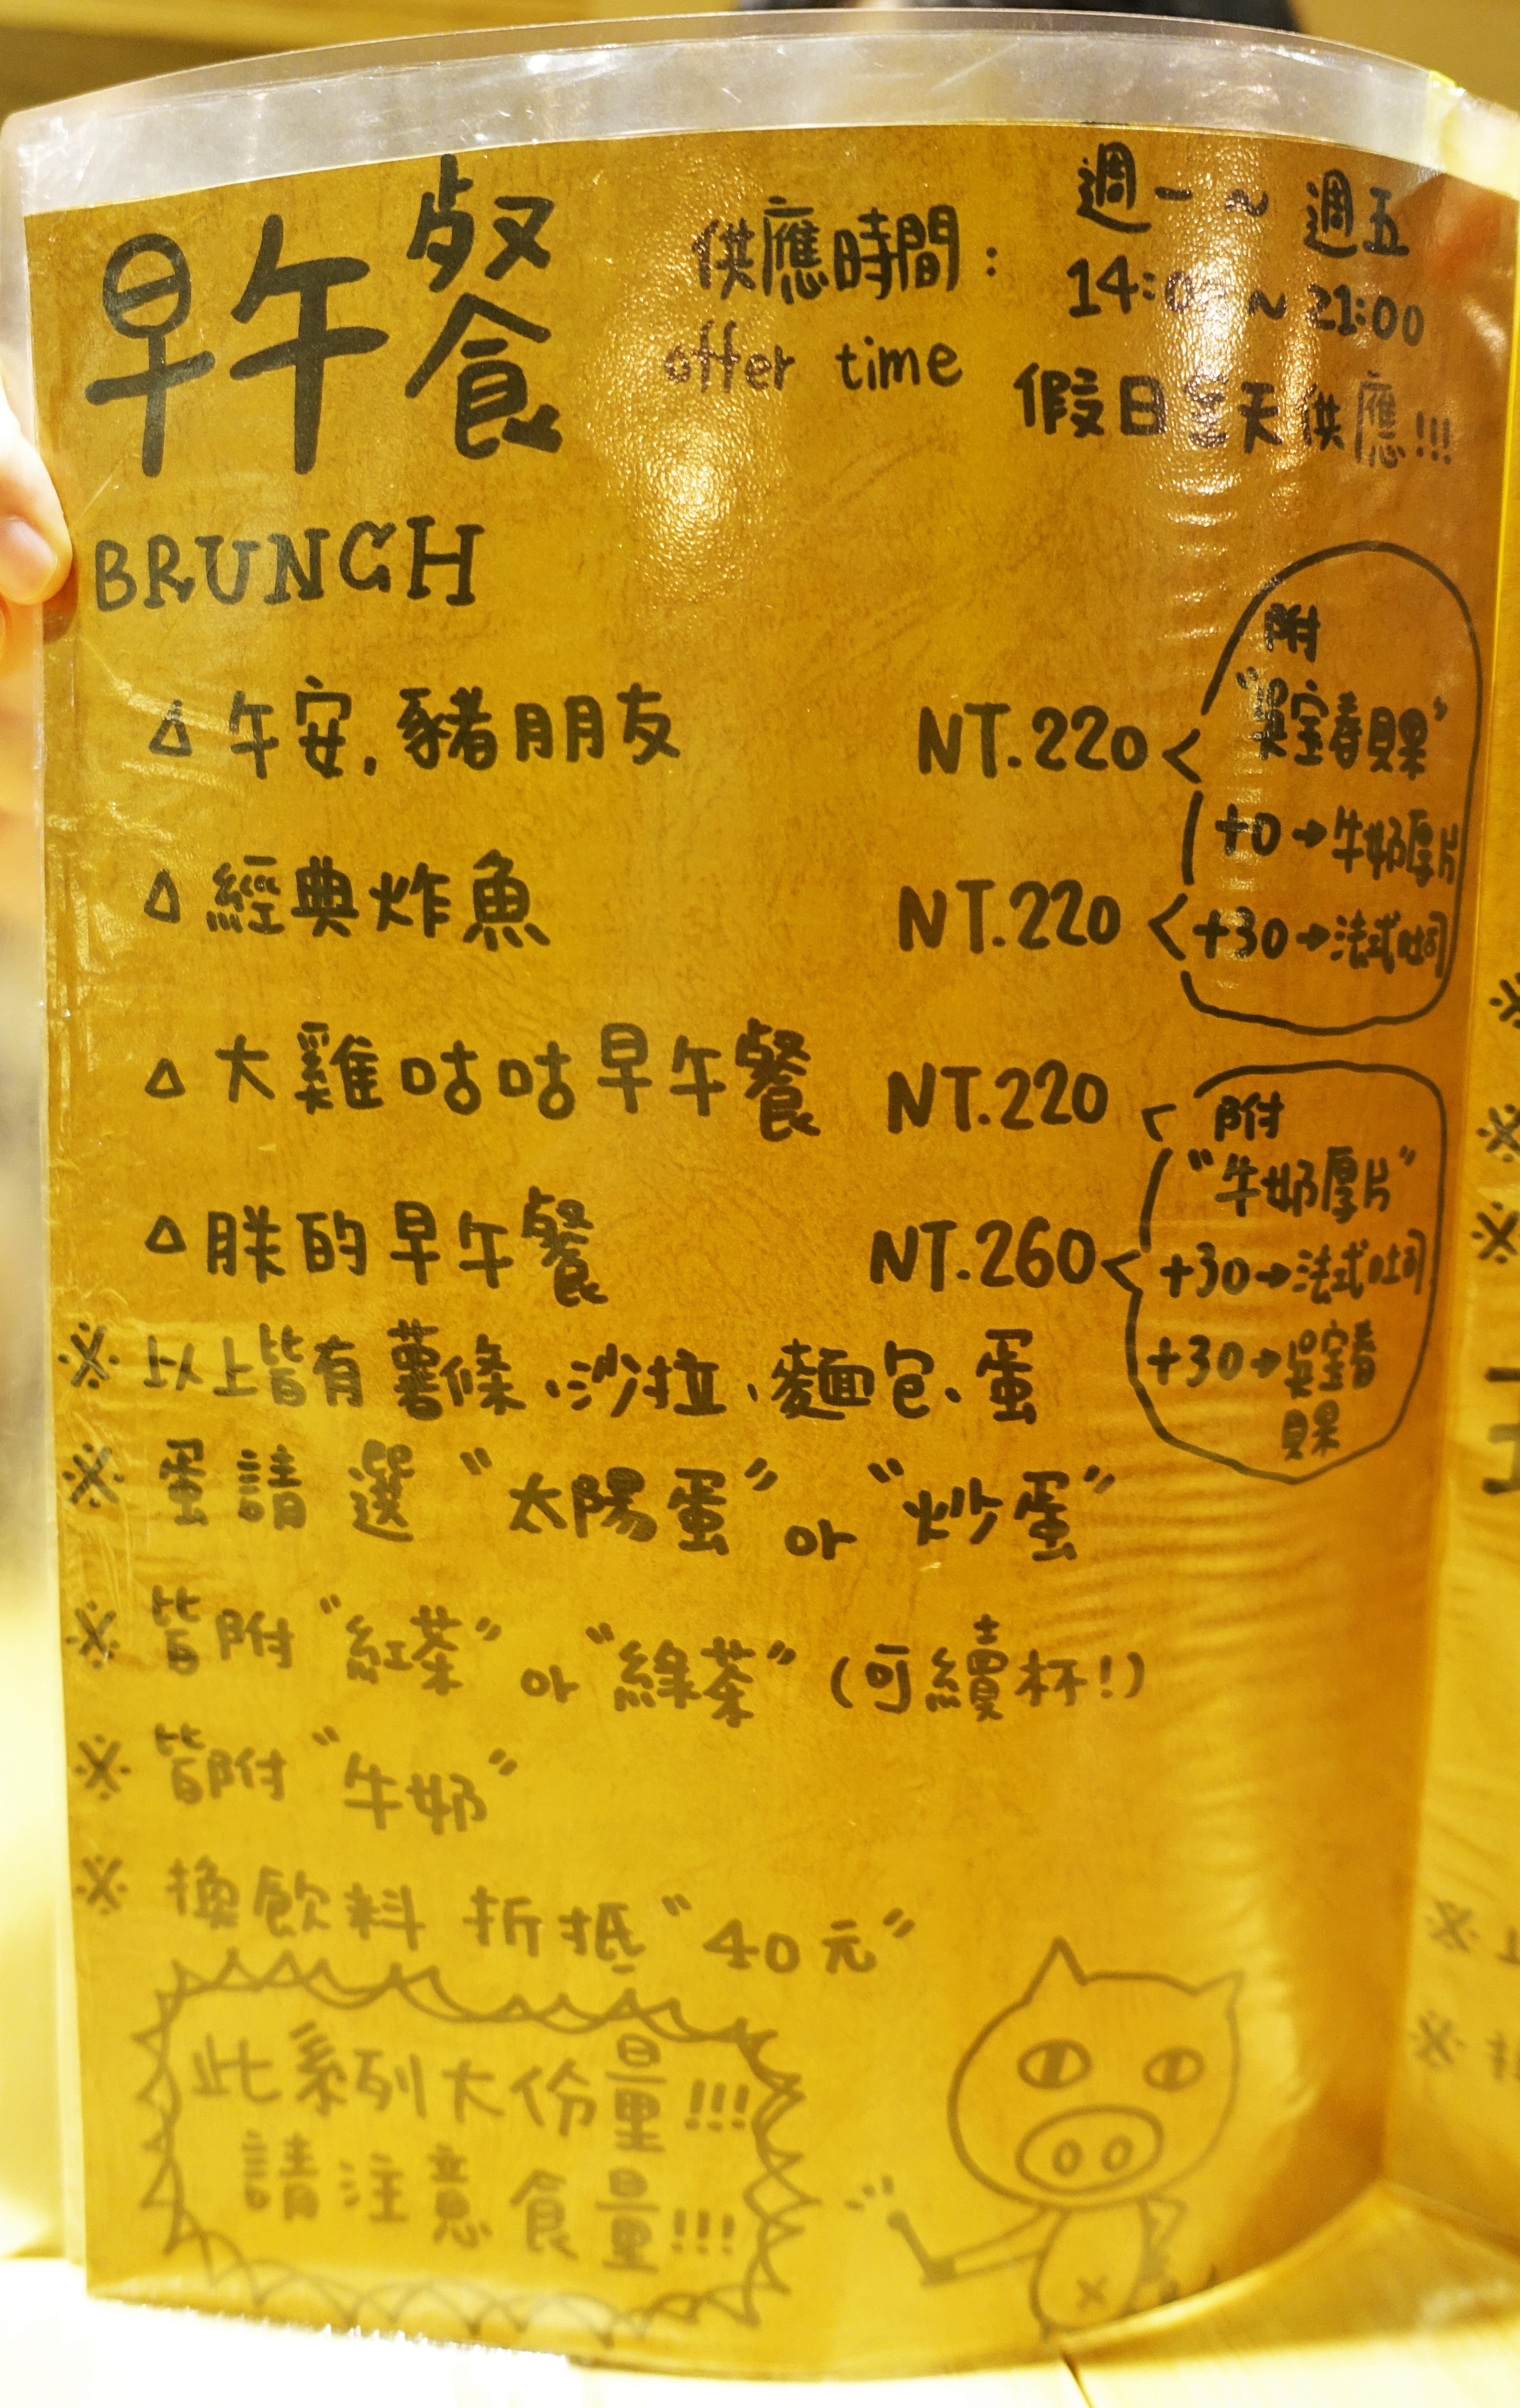 早午餐
BRUNCH
供應時間：
offer time
週一～週五
14:00～21:00
假日全天供應!!!
△午安.豬朋友 NT.220
△經典炸魚 NT.220
附
"吳宝春貝果"
+0→牛奶厚片
+30→法式吐司
△大雞咕咕早午餐 NT.220
△朕的早午餐 NT.260
附
"牛奶厚片"
+30→法式吐司
+30→吳宝春
貝果
※以上皆有薯條、沙拉、麵包、蛋
※蛋請選"太陽蛋"or"炒蛋"
※皆附"紅茶"or"綠茶"(可續杯!)
※皆附"牛奶"
※換飲料折抵"40元"
此系列大份量!!!
請注意食量!!!